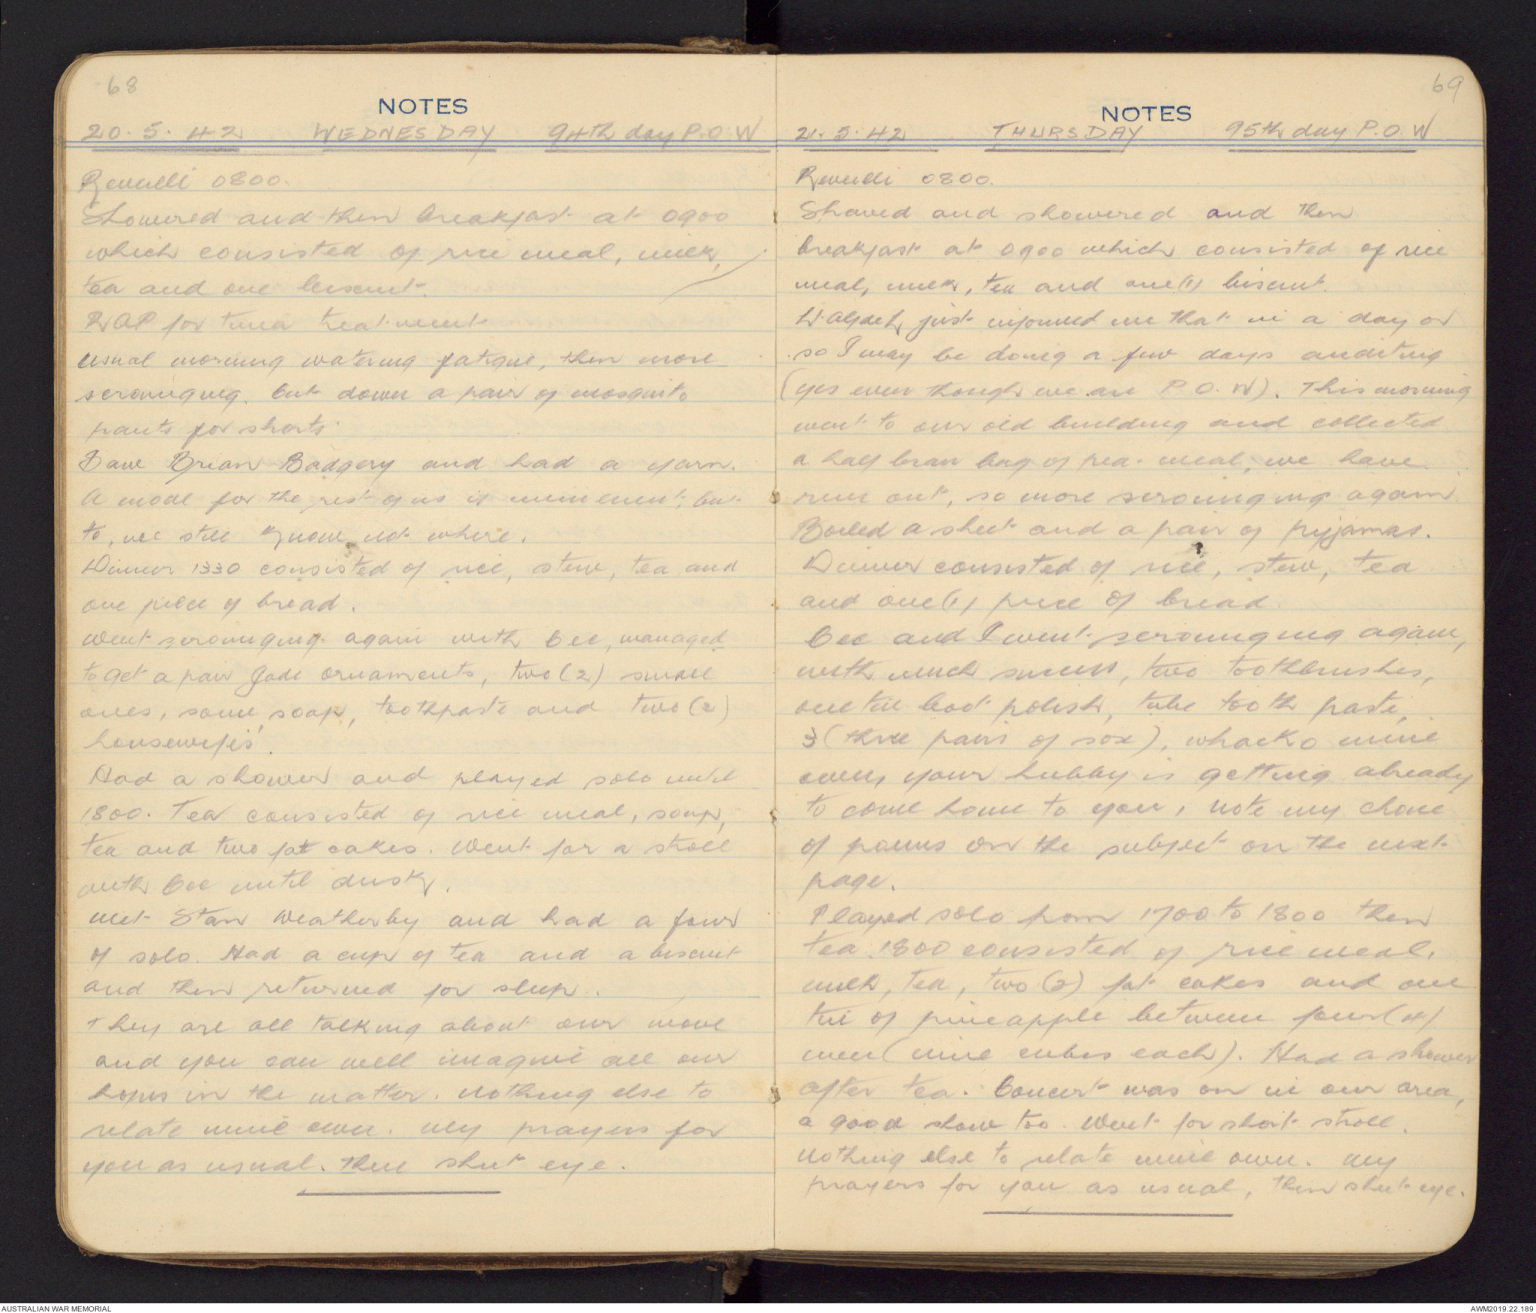 68
NOTES
20.5.42 WEDNESDAY 94th day P.O.W
Reveille 0800.
Showered and then breakfast at 0900
which consisted of rice meal, milk,
tea and one biscuit.
RAP for tinea treatment
usual morning watering fatigue, then more
scrounging. Cut down a pair of mosquito
pants for shorts.
Saw Brian Badgery and had a yarn.
A move for the rest of us is imminent, but
to, we still know not where.
Dinner 1330 consisted of rice, stew, tea and
one piece of bread.
Went scrounging again with Cec, managed
to get a pair Jade ornaments, two (2) small
ones, some soap, toothpaste and two (2)
housewifes'.
Had a shower and played solo until
1800. Tea consisted of rice meal, soup,
tea and two fat cakes. Went for a stroll
with Cec until dusk.
Met Stan Weatherby and had a four
of solo. Had a cup of tea and a biscuit
and then returned for sleep.
They are all talking about our move
and you can well imagine all our
hopes in the matter. Nothing else to
relate mine own. My prayers for
you as usual. Then shut eye.
69
NOTES
21.5.42 THURSDAY 95th day P.O.W
Reveille 0800.
Shaved and showered and then
breakfast at 0900 which consisted of rice
meal, milk, tea and one (1) biscuit.
just informed me that in a day or
so I may be doing a few days auditing
(yes even though we are P.O.W). This morning
went to our old building and collected
a half bran bag of pea-meal, we have
run out, so more scrounging again
Boiled a sheet and a pair of pyjamas.
Dinner consisted of rice, stew, tea
and one (1) piece of bread
Cec and I went scrounging again,
with much success, two toothbrushes,
one tin boot polish, tube tooth paste,
3 (three pairs of sox), whacko mine
own, your hubby is getting already
to come home to you, note my choice
of poems on the subject on the next
page.
Played solo from 1700 to 1800 then
tea. 1800 consisted of rice meal,
milk, tea, two (2) fat cakes and one
tin of pineapple between four (4)
men (nine cubes each). Had a shower
after tea. Concert was on in our area,
a good show too. Went for short stroll.
Nothing else to relate mine own. My
prayers for you as usual, then shut eye.
AUSTRALIAN WAR MEMORIAL
AWM2019.22.189